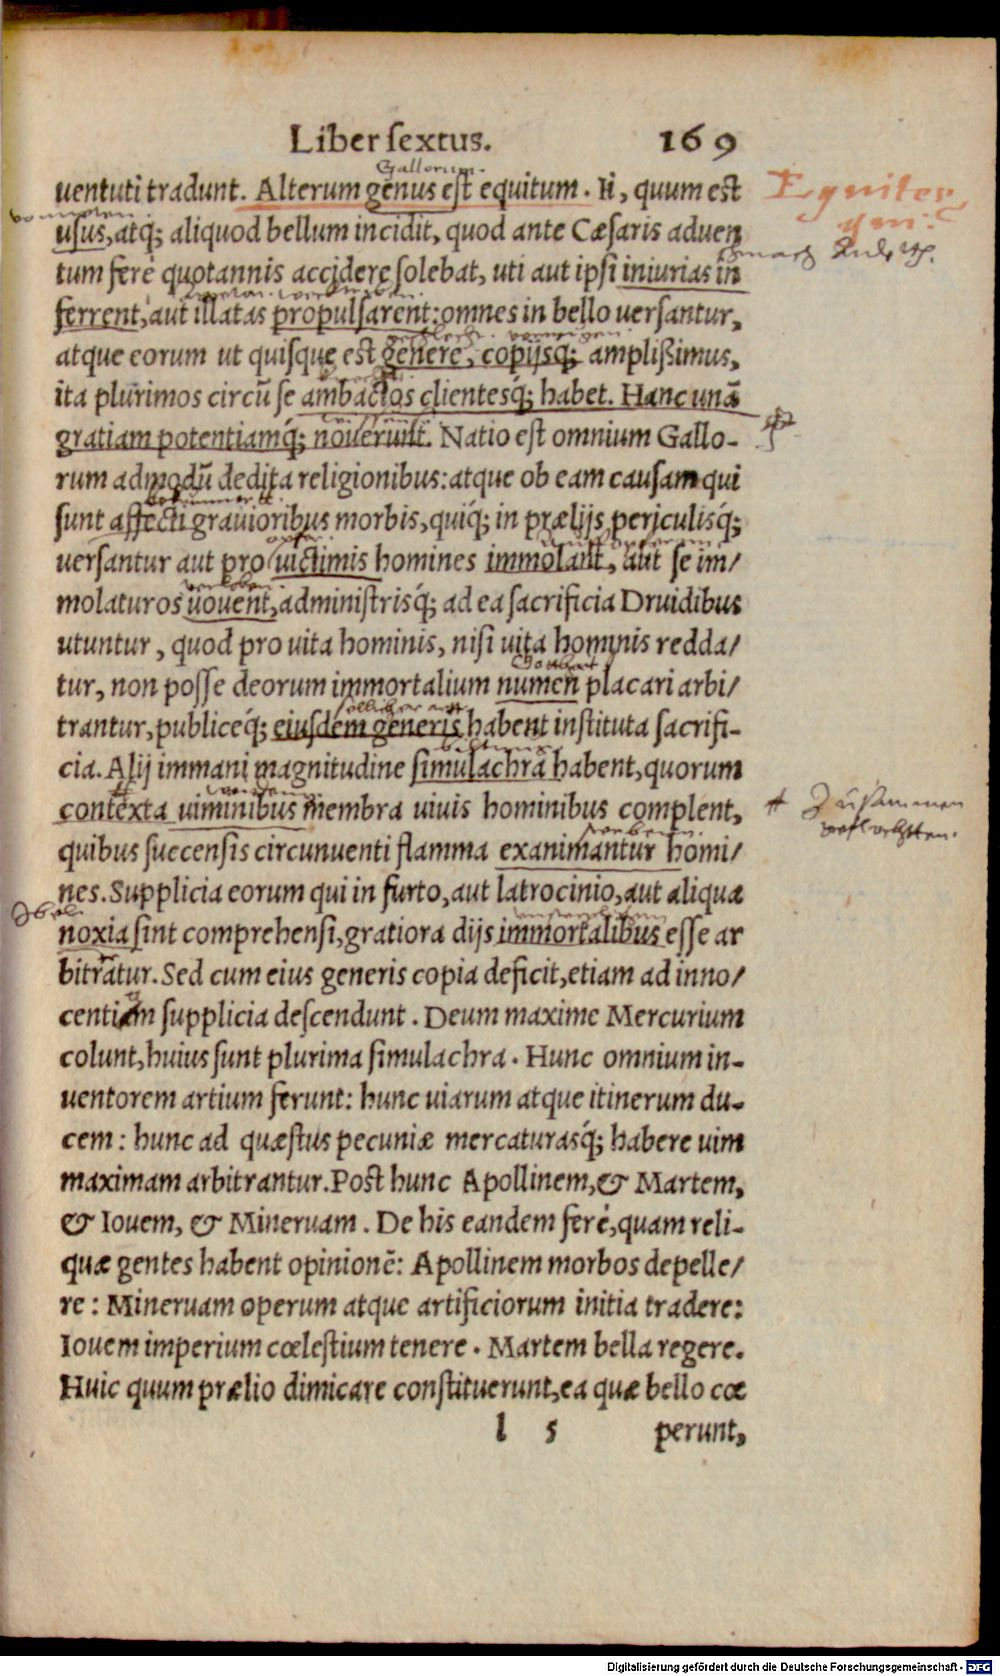 Liber sextus. 169
Gallorum.
uentuti tradunt. Alterum genus est equitum. Ii, quum est
Equites
qui
usus, atq; aliquod bellum incidit, quod ante Cæsaris aduen
tum ferè quotannis accidere solebat, uti aut ipsi iniurias in
ferrent, aut illatas propulsarent: omnes in bello uersantur,
atque eorum ut quisque est genere, copijsq; amplißimus,
ita plurimos circũ se ambactos clientesq́; habet. Hanc unã
gratiam potentiamq́; nouerunt. Natio est omnium Gallo-
rum admodũ dedita religionibus: atque ob eam causam qui
sunt affecti grauioribus morbis, quiq́; in prælijs periculisq́;
opfer
uersantur aut pro uictimis homines immolant, aut se im/
molaturos uouent, administrisq́; ad ea sacrificia Druidibus
utuntur, quod pro uita hominis, nisi uita hominis redda/
tur, non posse deorum immortalium numen placari arbi/
trantur, publiceq́; eiusdem generis habent instituta sacrifi-
cia. Alij immani magnitudine simulachra habent, quorum
contexta uiminibus membra uiuis hominibus complent,
Zusammen
quibus succensis circunuenti flamma exanimantur homi/
nes. Supplicia eorum qui in furto, aut latrocinio, aut aliqua
noxia sint comprehensi, gratiora dijs immortalibus esse ar
bitratur. Sed cum eius generis copia deficit, etiam ad inno/
centiam supplicia descendunt. Deum maxime Mercurium
colunt, huius sunt plurima simulachra. Hunc omnium in-
uentorem artium ferunt: hunc uiarum atque itinerum du-
cem: hunc ad quæstus pecuniæ mercaturasq́; habere uim
maximam arbitrantur. Post hunc Apollinem, & Martem,
& Iouem, & Mineruam. De his eandem ferè, quam reli-
quæ gentes habent opinionẽ: Apollinem morbos depelle/
re: Mineruam operum atque artificiorum initia tradere:
Iouem imperium cœlestium tenere. Martem bella regere.
Huic quum prælio dimicare constituerunt, ea quæ bello cœ
l 5 perunt,
Digitalisierung gefördert durch die Deutsche Forschungsgemeinschaft - DFG